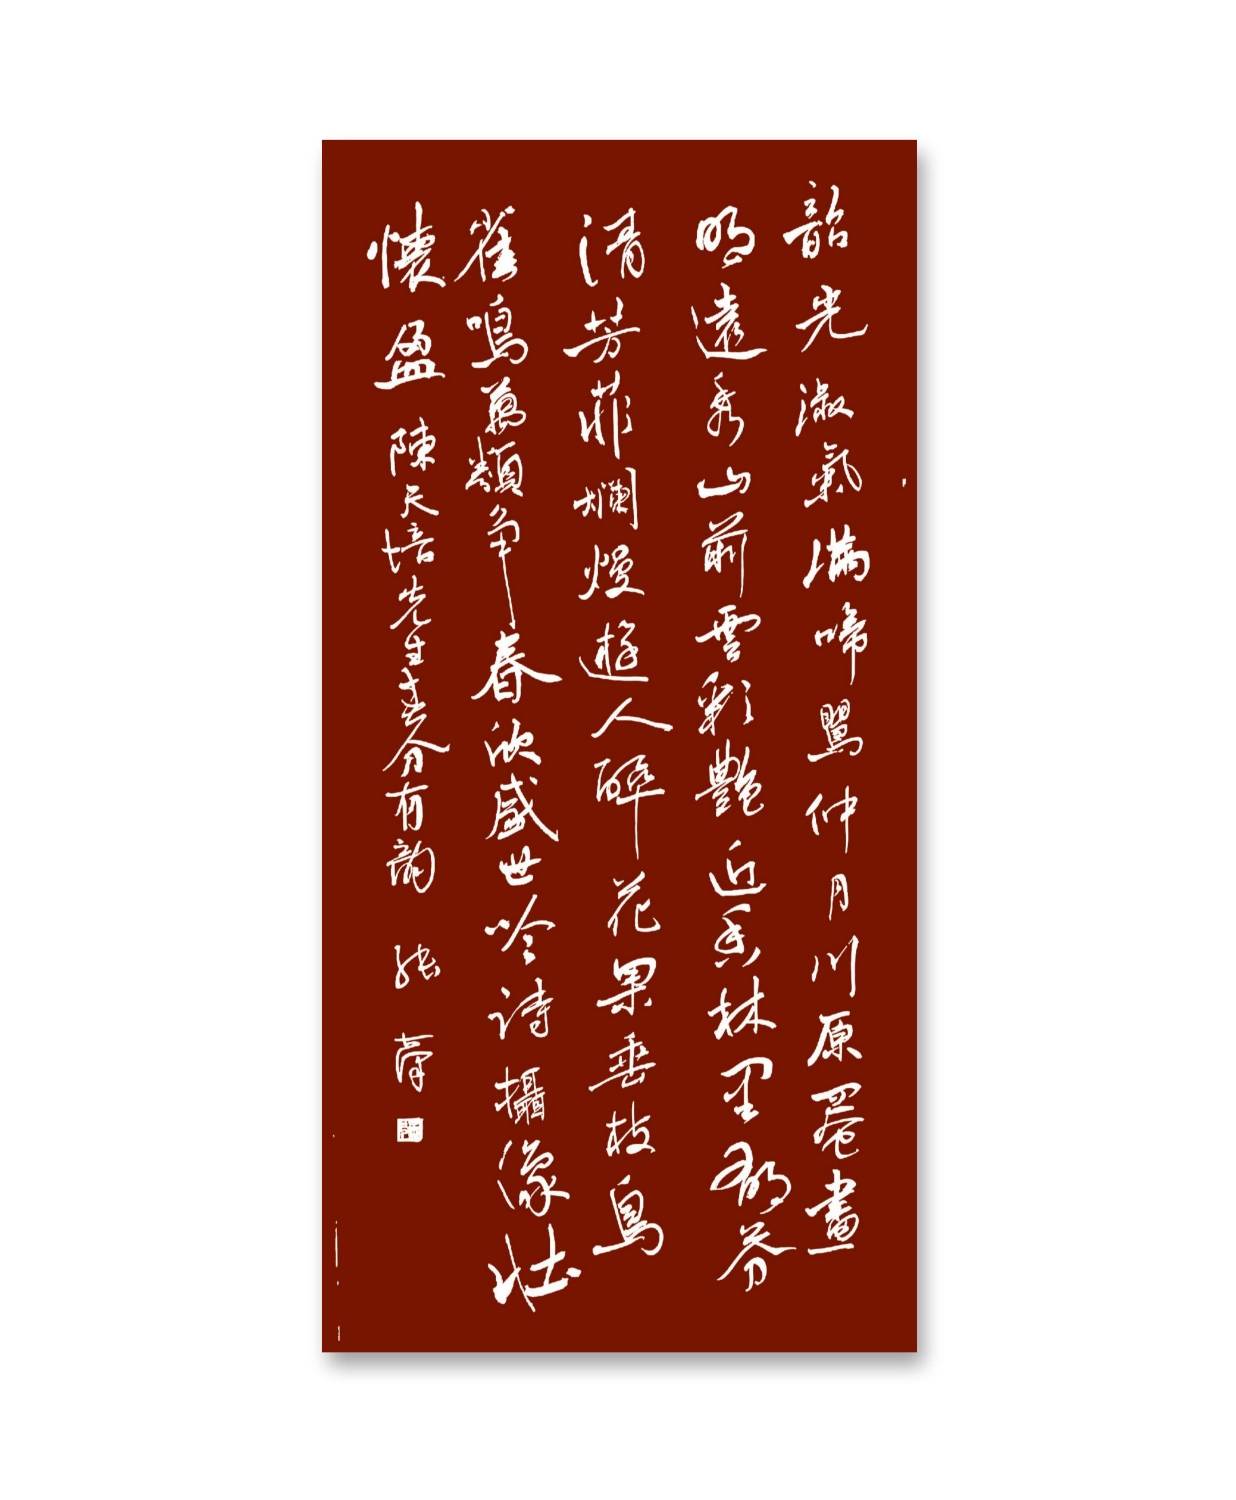 韶光淑氣滿啼鶯仲月川原罨畫
明遠秀山前雲彩艷近香林里郁芬
清芳菲爛熳遊人醉花果垂枝鳥
雀鳴萬類爭春欣盛世吟詩攝像壯
懷盈 陳天培先生春分有韻